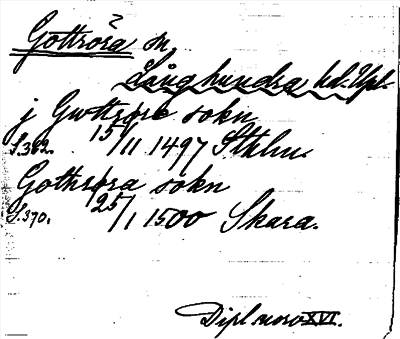 Gottröra sn
Långhundra hd. Upl.
j Gwttrøre sokn
S. 362. 15/11 1497 Sthlm.
Gothrøra sokn
S. 370. 25/1 1500 Skara.
Dipl noro XVI.